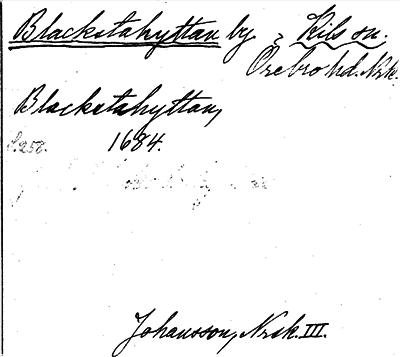 Blackstahyttan by, Kils sn.
Örebro hd. Nrk.
Blackstahyttan,
S. 258. 1684.
Johansson, Nrk. III.